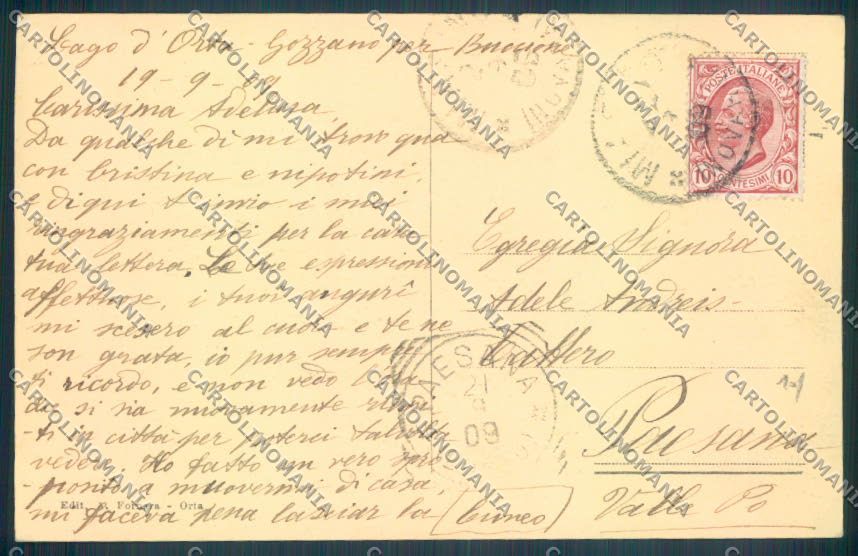 Lago d'Orta - Gozzano per Buccione
19-9-09
Carissima Adelina,
Da qualche dì mi trovo qua
con Cristina e nipotini,
e di qui t'invio i miei
ringraziamenti per la cara
tua lettera. Le tue espressioni
affettuose, i tuoi augurî
mi scesero al cuore e te ne
son grata, io pur sempre
ti ricordo, e non vedo l'ora
che si sia nuovamente riuni-
ti in città per poterci talvolta
vedere. Ho fatto un vero spro-
posito a muovermi di casa,
mi faceva pena lasciar la
Edit. Fornara - Orta
POSTE ITALIANE
10 CENTESIMI 10
Egregia Signora
Adele Andreis-
Paesana
Valle Po
(Cuneo)
PAESANA
21
9
09
CARTOLINOMANIA